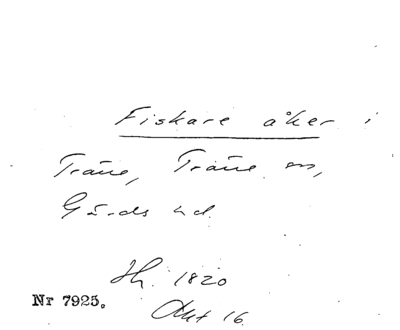 Fiskare åker i
Träne, Träne sn,
Gärds hd.
Jh. 1820
Akt 16
Nr 7925.